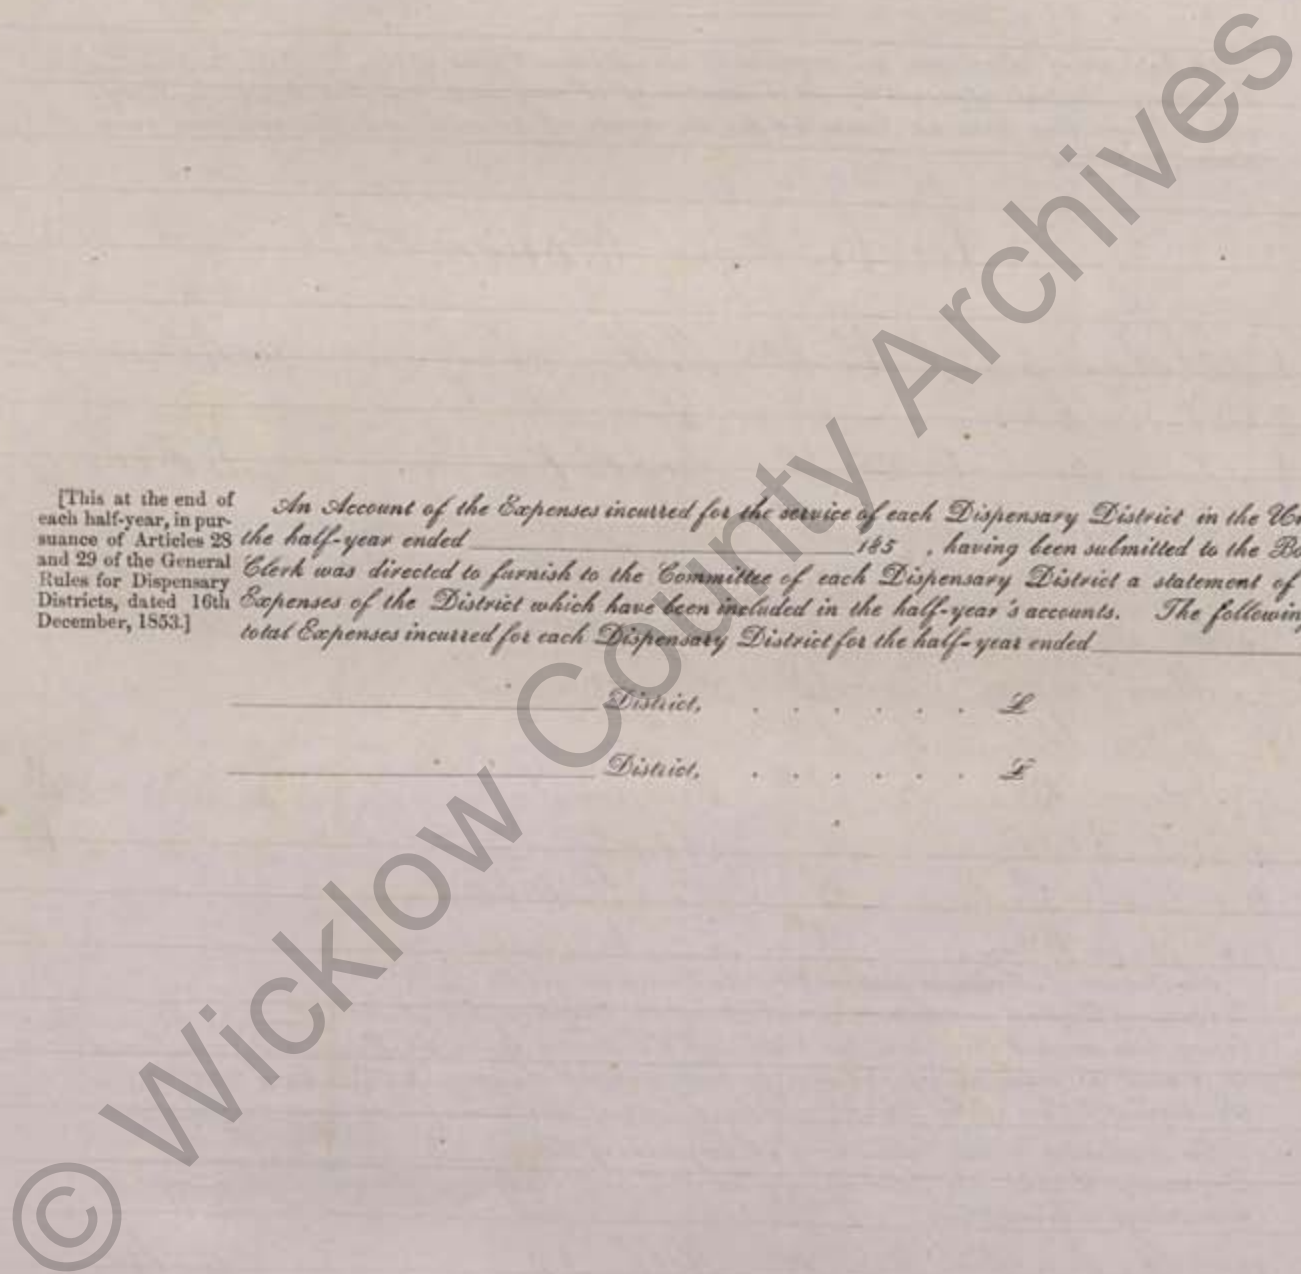 [This at the end of
each half-year, in pur-
suance of Articles 28
and 29 of the General
Rules for Dispensary
Districts, dated 16th
December, 1853.]
An Account of the Expenses incurred for the service of each Dispensary District in the Un
the half-year ended 185 , having been submitted to the Bo
Clerk was directed to furnish to the Committee of each Dispensary District a statement of
Expenses of the District which have been included in the half-year's accounts. The following
total Expenses incurred for each Dispensary District for the half-year ended
District, . . . . . . £
District, . . . . . . £
© Wicklow County Archives